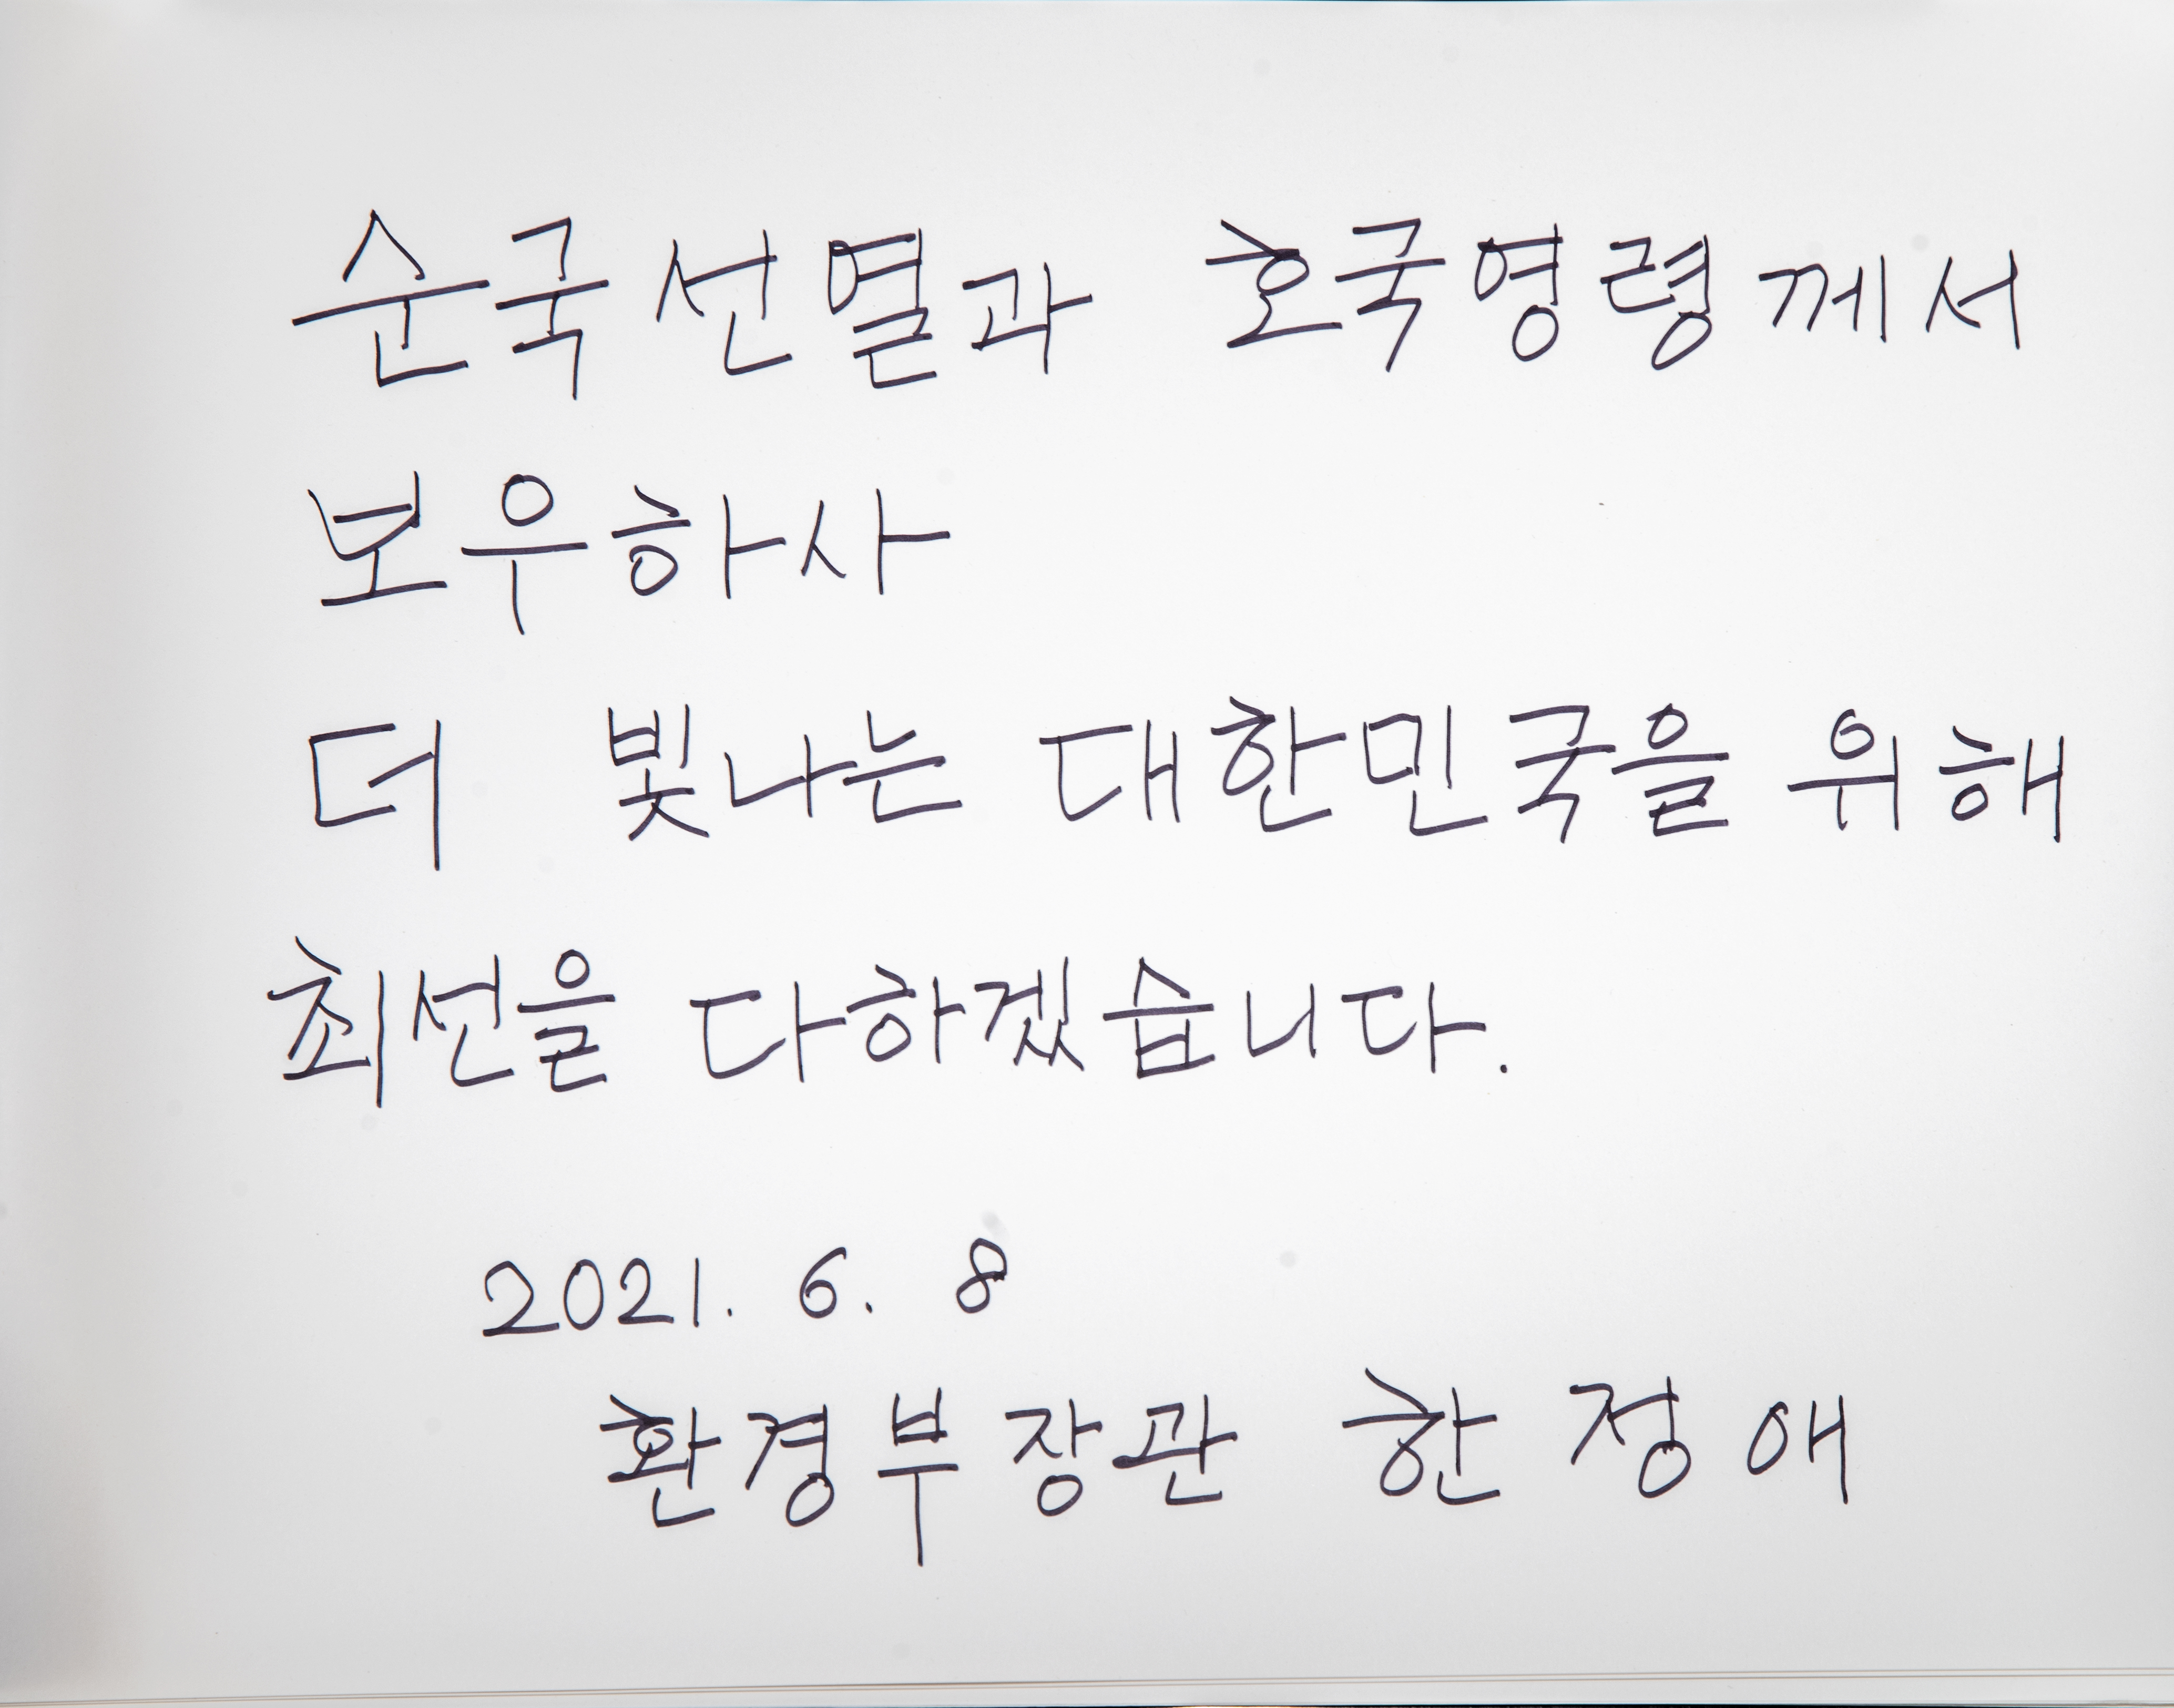 순국선열과 호국영령께서
보우하사
더 빛나는 대한민국을 위해
최선을 다하겠습니다.
2021. 6. 8
환경부장관 한정애